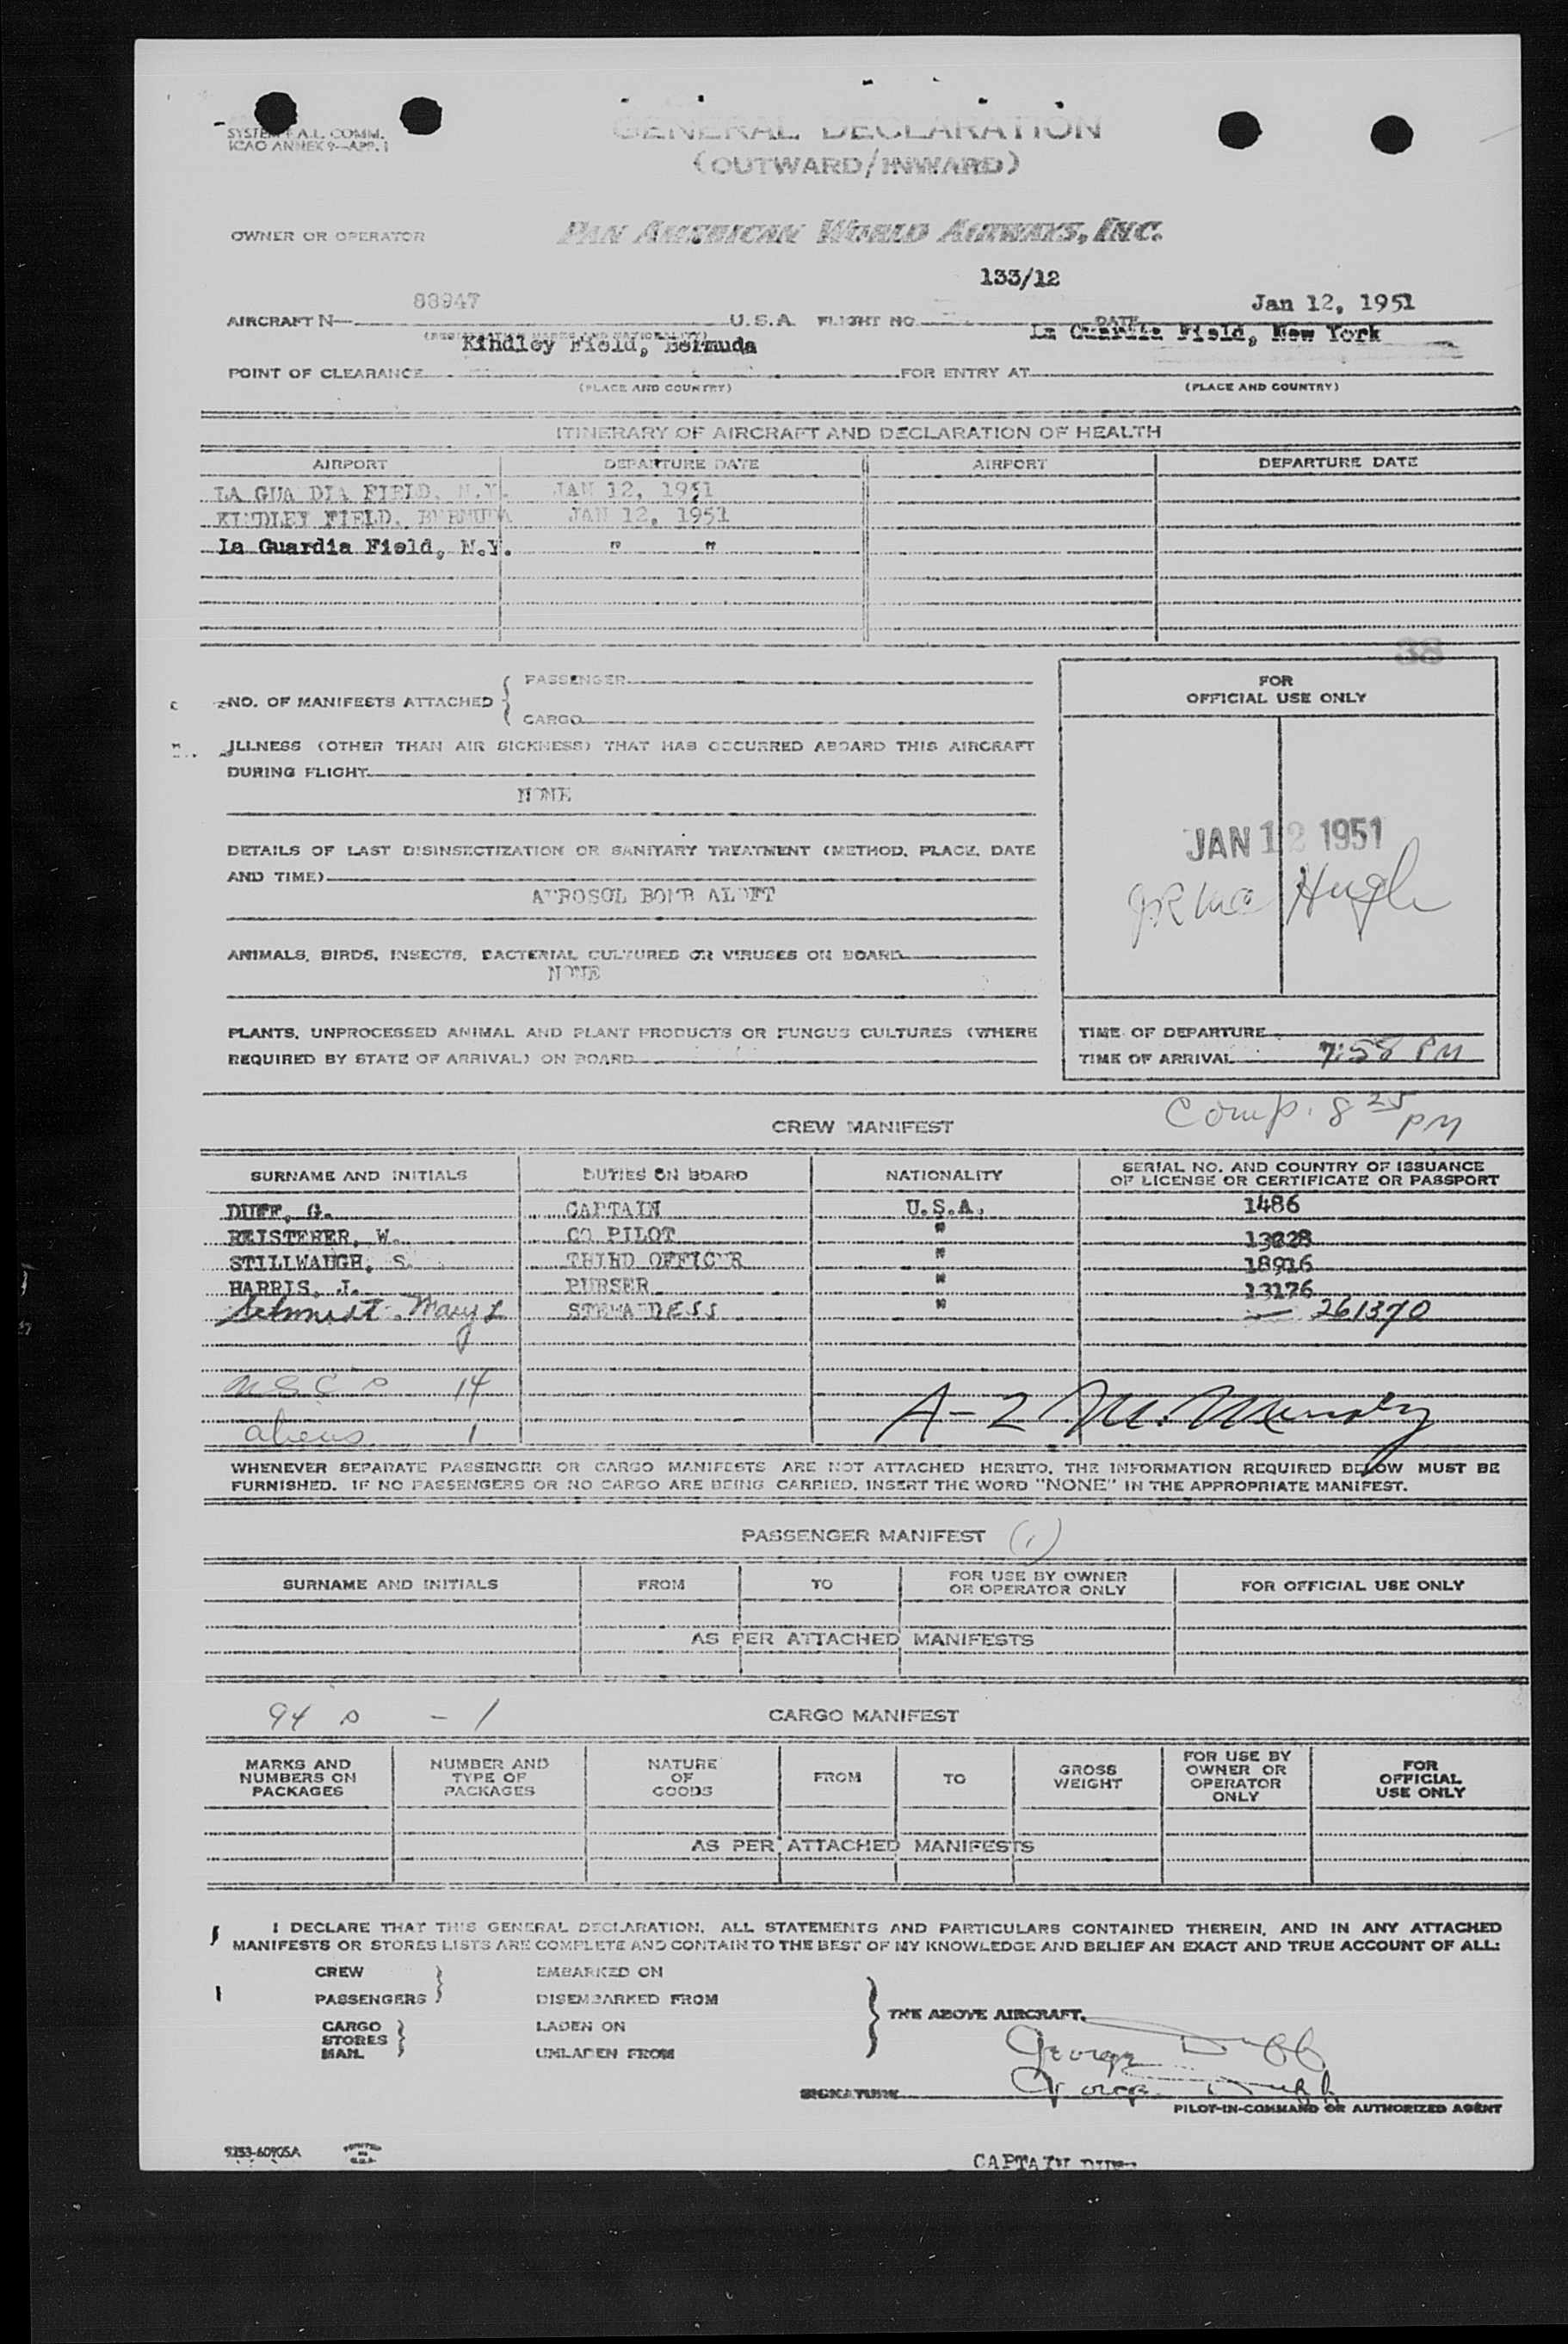 SYSTEM F.A.L. COMM.
ICAO ANNEX 9—APP. 1
GENERAL DECLARATION
(OUTWARD/INWARD)
OWNER OR OPERATOR PAN AMERICAN WORLD AIRWAYS, INC.
133/12
88947 Jan 12, 1951
AIRCRAFT N— U.S.A. FLIGHT NO. DATE
Kindley Field, Bermuda La Guardia Field, New York
POINT OF CLEARANCE FOR ENTRY AT
(PLACE AND COUNTRY) (PLACE AND COUNTRY)
ITINERARY OF AIRCRAFT AND DECLARATION OF HEALTH
AIRPORT DEPARTURE DATE AIRPORT DEPARTURE DATE
LA GUA DIA FIELD, N.Y. JAN 12, 1951
KINDLEY FIELD, BERMUDA JAN 12, 1951
La Guardia Field, N.Y. " "
38
NO. OF MANIFESTS ATTACHED { PASSENGER
CARGO
FOR
OFFICIAL USE ONLY
ILLNESS (OTHER THAN AIR SICKNESS) THAT HAS OCCURRED ABOARD THIS AIRCRAFT
DURING FLIGHT
NONE
DETAILS OF LAST DISINSECTIZATION OR SANITARY TREATMENT (METHOD, PLACE, DATE
AND TIME)
AEROSOL BOMB ALOFT
JAN 12 1951
ANIMALS, BIRDS, INSECTS, BACTERIAL CULTURES OR VIRUSES ON BOARD
NONE
PLANTS, UNPROCESSED ANIMAL AND PLANT PRODUCTS OR FUNGUS CULTURES (WHERE
REQUIRED BY STATE OF ARRIVAL) ON BOARD
TIME OF DEPARTURE
TIME OF ARRIVAL 7:58 PM
Comp. 8 25 PM
CREW MANIFEST
SURNAME AND INITIALS DUTIES ON BOARD NATIONALITY SERIAL NO. AND COUNTRY OF ISSUANCE
OF LICENSE OR CERTIFICATE OR PASSPORT
DUFF, G. CAPTAIN U.S.A. 1486
REISTERER, W. CO PILOT " 13228
STILLWAUGH, S. THIRD OFFICER " 18916
HARRIS, J. PURSER " 13176
Schmidt, Mary L STEWARDESS " 261370
USC s 14
aliens 1
A-2
WHENEVER SEPARATE PASSENGER OR CARGO MANIFESTS ARE NOT ATTACHED HERETO, THE INFORMATION REQUIRED BELOW MUST BE
FURNISHED. IF NO PASSENGERS OR NO CARGO ARE BEING CARRIED, INSERT THE WORD "NONE" IN THE APPROPRIATE MANIFEST.
PASSENGER MANIFEST (1)
SURNAME AND INITIALS FROM TO FOR USE BY OWNER
OR OPERATOR ONLY FOR OFFICIAL USE ONLY
AS PER ATTACHED MANIFESTS
94 s - 1 CARGO MANIFEST
MARKS AND
NUMBERS ON
PACKAGES
NUMBER AND
TYPE OF
PACKAGES
NATURE
OF
GOODS
FROM
TO
GROSS
WEIGHT
FOR USE BY
OWNER OR
OPERATOR
ONLY
FOR
OFFICIAL
USE ONLY
AS PER ATTACHED MANIFESTS
I DECLARE THAT THIS GENERAL DECLARATION, ALL STATEMENTS AND PARTICULARS CONTAINED THEREIN, AND IN ANY ATTACHED
MANIFESTS OR STORES LISTS ARE COMPLETE AND CONTAIN TO THE BEST OF MY KNOWLEDGE AND BELIEF AN EXACT AND TRUE ACCOUNT OF ALL:
CREW EMBARKED ON
PASSENGERS DISEMBARKED FROM
THE ABOVE AIRCRAFT.
CARGO LADEN ON
STORES
MAIL UNLADEN FROM
George Duff
George Duff
SIGNATURE
PILOT-IN-COMMAND OR AUTHORIZED AGENT
9253-60905A PRINTED
IN
U.S.A.
CAPTAIN DUFF